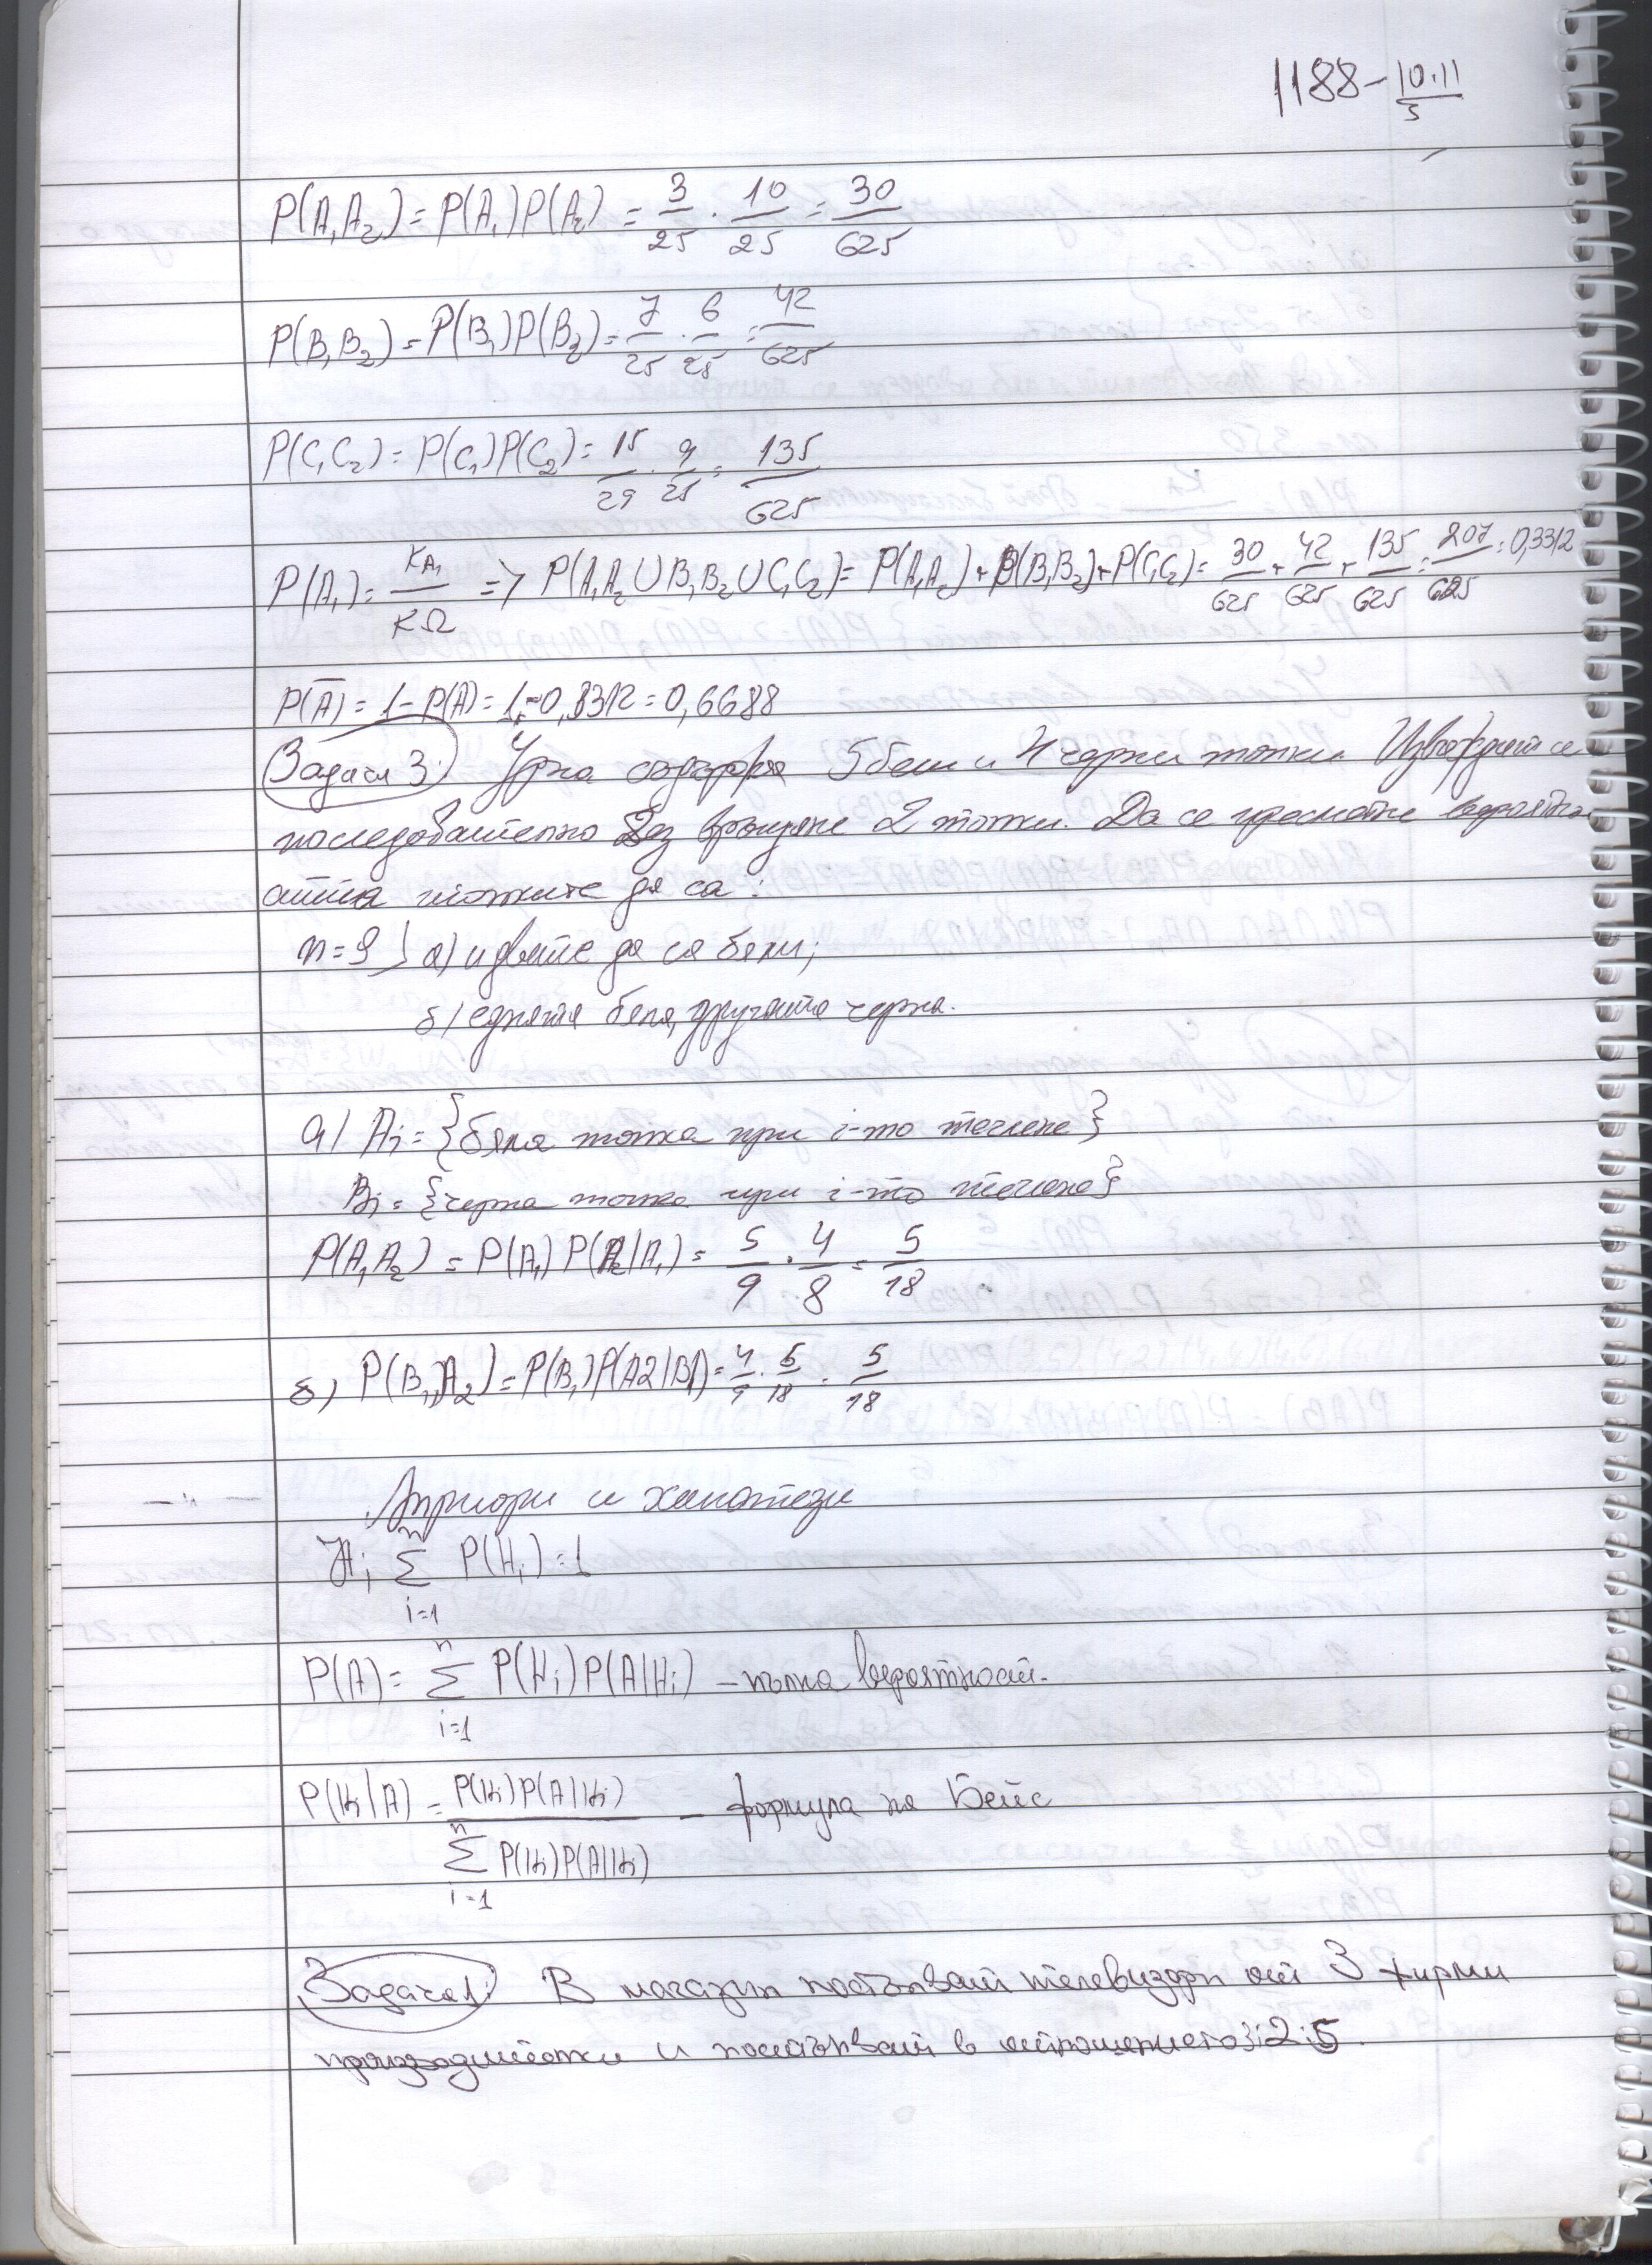 1188 - 10.11/3
P(A₁A₂) = P(A₁)P(A₂) = 3/25 · 10/25 = 30/625
P(B₁B₂) = P(B₁)P(B₂) = 7/25 · 6/25 = 42/625
P(C₁C₂) = P(C₁)P(C₂) = 15/29 · 9/25 = 135/625
P(A₁) = KA₁/KΩ => P(A₁A₂ ∪ B₁B₂ ∪ C₁C₂) = P(A₁A₂) + P(B₁B₂) + P(C₁C₂) = 30/625 + 42/625 + 135/625 = 207/625 = 0,3312
P(Ā) = 1 - P(A) = 1 - 0,3312 = 0,6688
Задача 3: Урна съдържа 5 бели и 4 черни топки. Изваждат се
последователно без връщане 2 топки. Да се пресметне вероятно
стта топките да са:
n=9 а) и двете да са бели;
б) едната бяла, другата черна.
а) Ai = {бяла топка при i-то теглене}
Bi = {черна топка при i-то теглене}
P(A₁A₂) = P(A₁) P(A₂|A₁) = 5/9 · 4/8 = 5/18
б) P(B₁A₂) = P(B₁)P(A2|B1) = 4/9 · 5/18 = 5/18
Априори и хипотези
Hi Σ i=1 n P(Hi) = 1
P(A) = Σ i=1 n P(Hi) P(A|Hi) - пълна вероятност.
P(Hi|A) = P(Hi)P(A|Hi) / Σ i=1 n P(Hi)P(A|Hi) - формула на Бейс
Задача 1: В магазин постъпват телевизори от 3 фирми
производителки и постъпват в отношението 3:2:5.